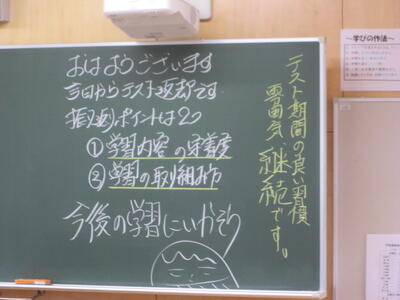 おはようございます
今日からテスト返却です
振り返りポイントは2つ
①学習内容の定着度
②学習の取り組み方
今後の学習にいかそう
テスト期間の良い習慣
雰囲気、継続です。
～学びの作法～